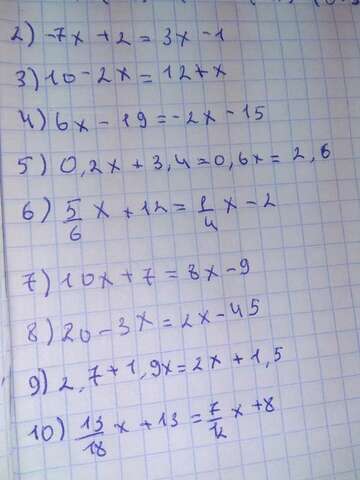 2) -7x + 2 = 3x - 1
3) 10 - 2x = 12 + x
4) 6x - 19 = -2x - 15
5) 0,2x + 3,4 = 0,6x = 2,6
6) 5/6 x + 12 = 1/4 x - 2
7) 10x + 7 = 8x - 9
8) 20 - 3x = 2x - 45
9) 2,7 + 1,9x = 2x + 1,5
10) 13/18 x + 13 = 7/12 x + 8